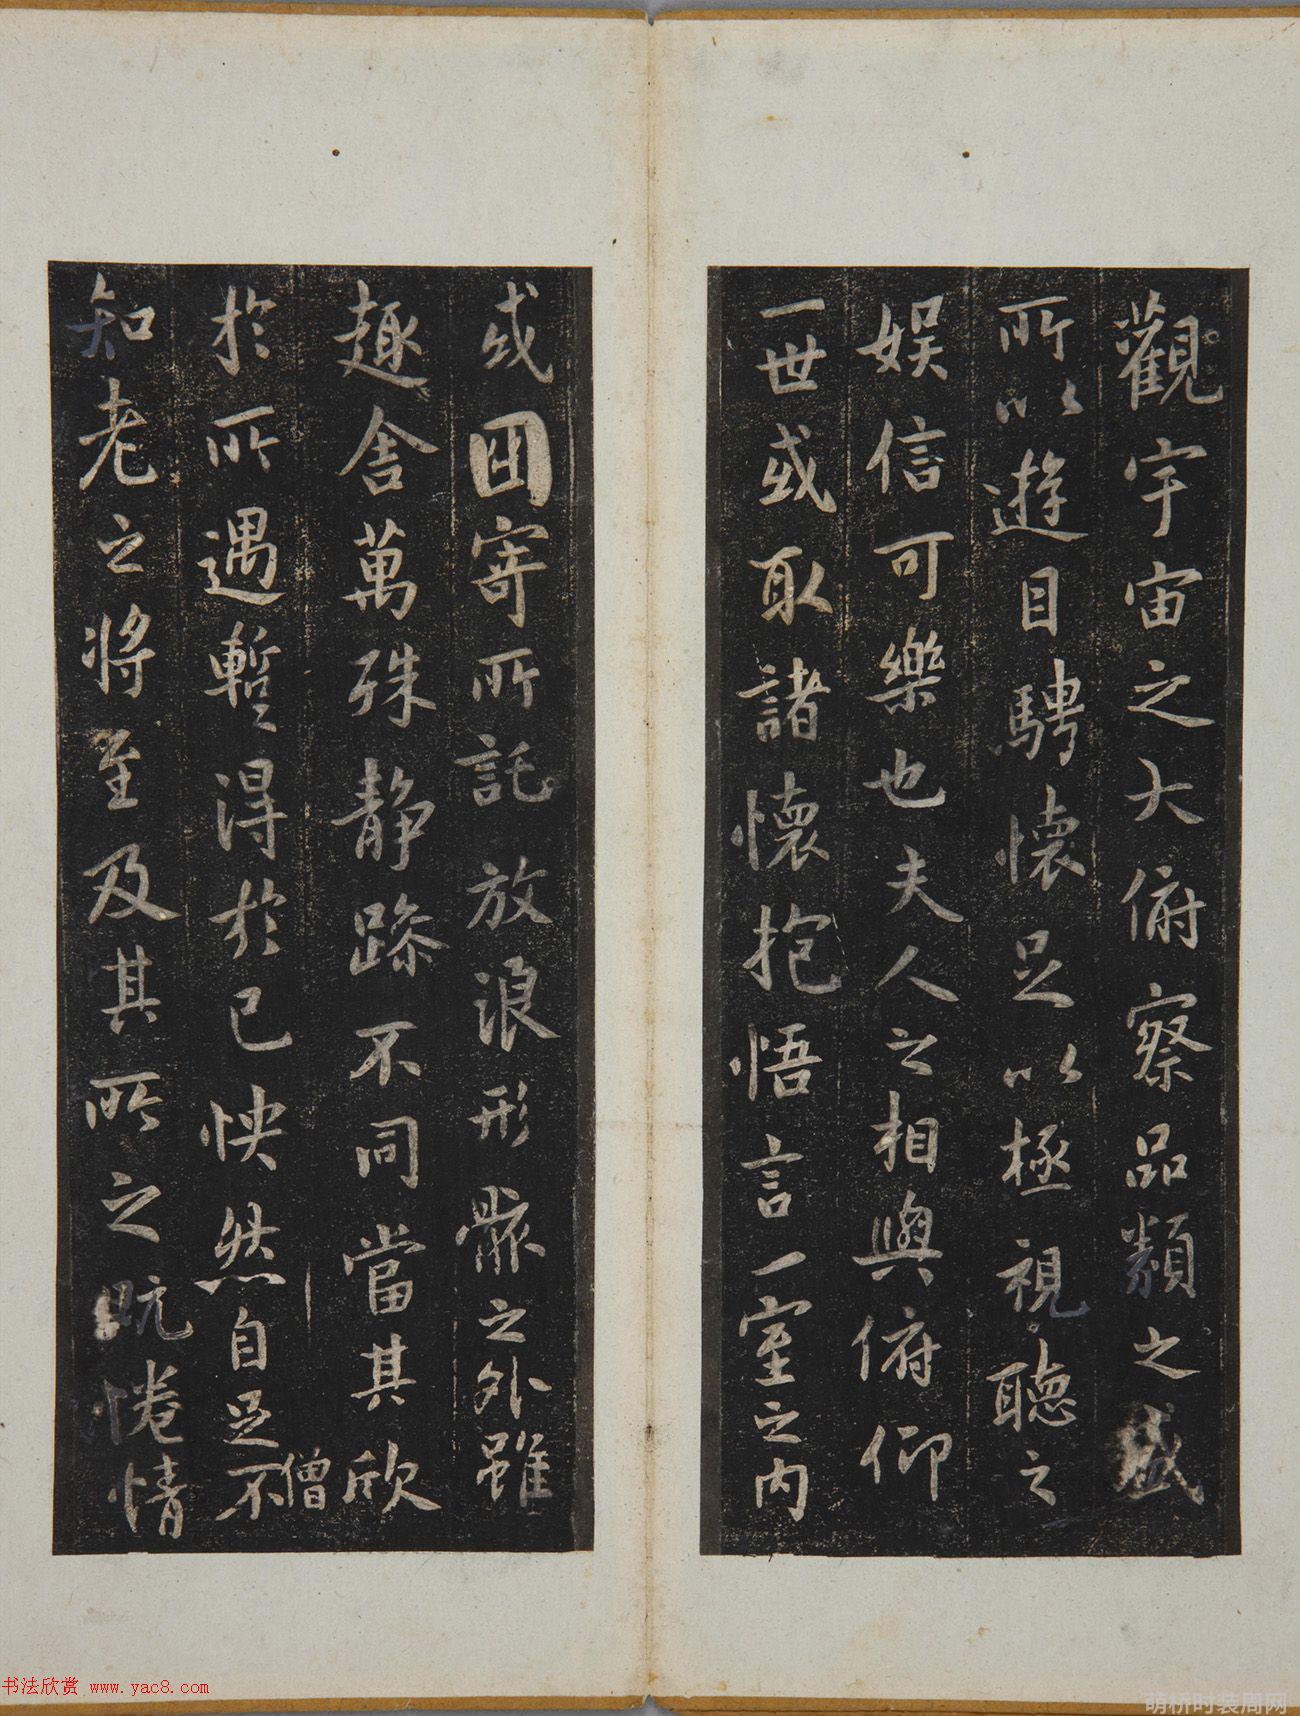 觀宇宙之大俯察品類之盛
所以遊目騁懷足以極視聽之
娛信可樂也夫人之相與俯仰
一世或取諸懷抱悟言一室之內
或因寄所託放浪形骸之外雖
趣舍萬殊靜躁不同當其欣
於所遇暫得於己怏然自足不
僧
知老之將至及其所之既惓情
书法欣赏 www.yac8.com
萌桥时装周网